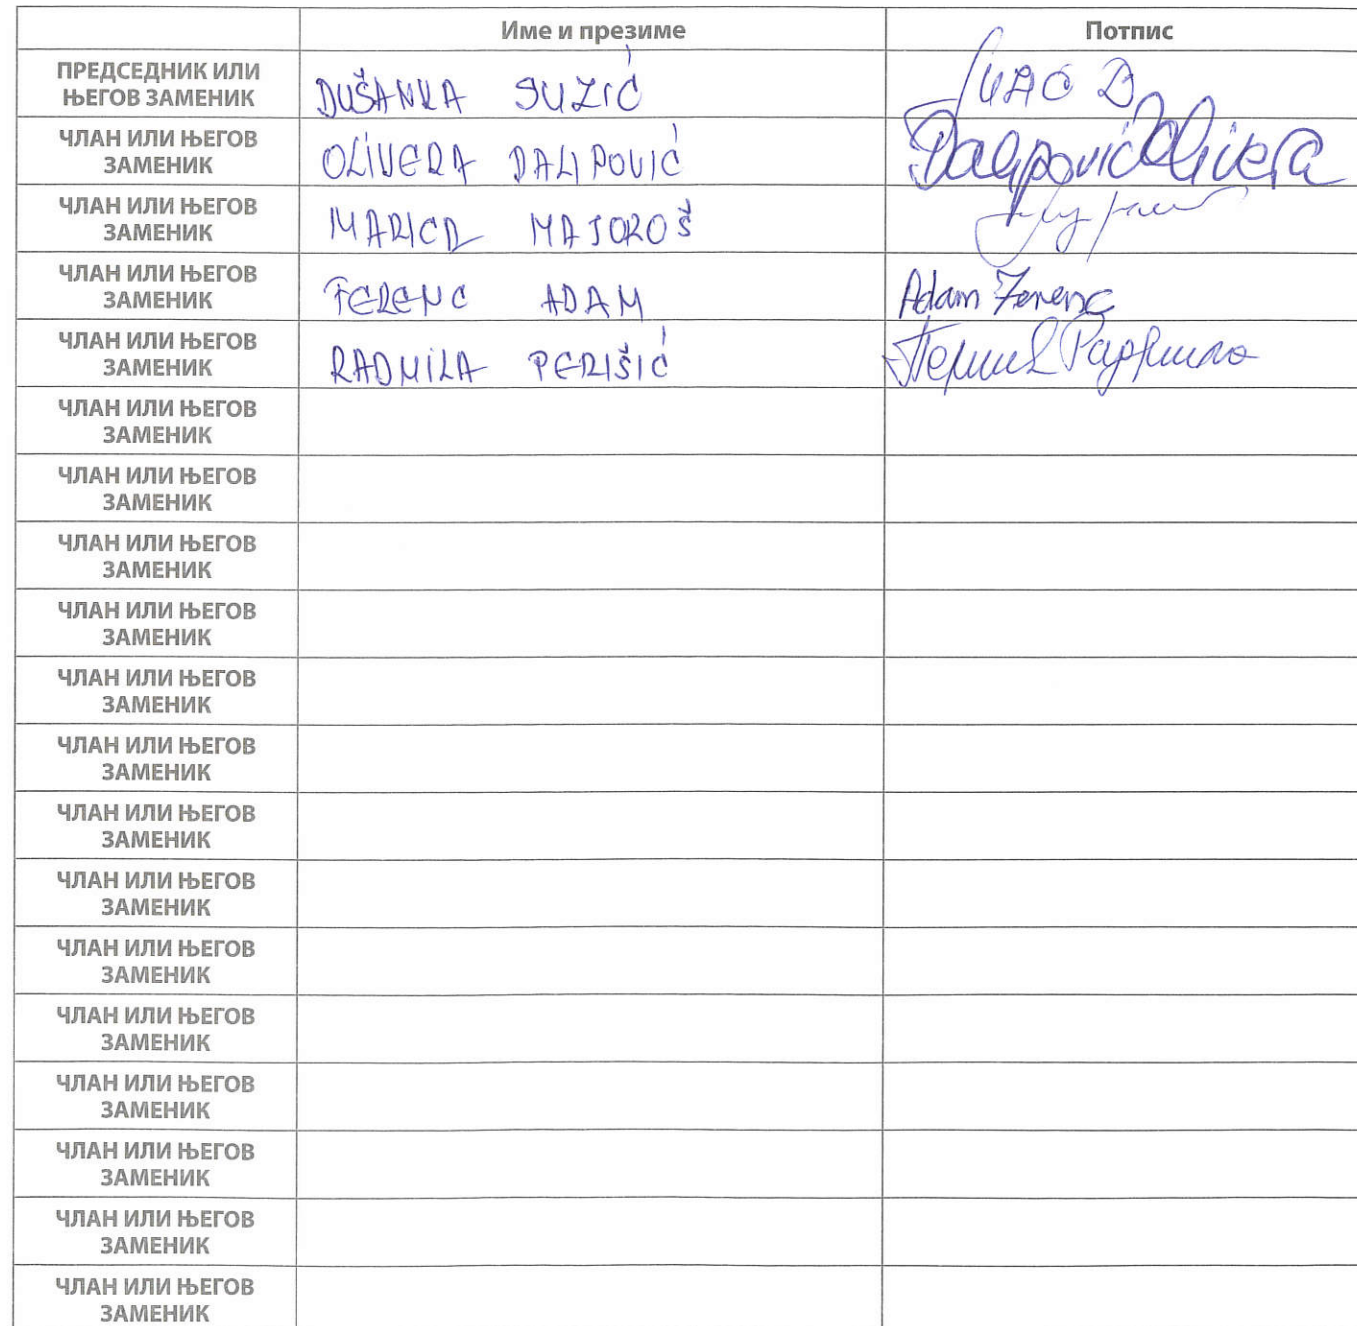 Име и презиме Потпис
ПРЕДСЕДНИК ИЛИ
ЊЕГОВ ЗАМЕНИК
DUŠANKA SUZIĆ
ЧЛАН ИЛИ ЊЕГОВ
ЗАМЕНИК
OLIVERA DALIPOVIĆ Dalipović Olivera
ЧЛАН ИЛИ ЊЕГОВ
ЗАМЕНИК
MARICA MAJOROŠ
ЧЛАН ИЛИ ЊЕГОВ
ЗАМЕНИК
FERENC ADAM Adam Ferenc
ЧЛАН ИЛИ ЊЕГОВ
ЗАМЕНИК
RADMILA PERIŠIĆ Перишић Радмила
ЧЛАН ИЛИ ЊЕГОВ
ЗАМЕНИК
ЧЛАН ИЛИ ЊЕГОВ
ЗАМЕНИК
ЧЛАН ИЛИ ЊЕГОВ
ЗАМЕНИК
ЧЛАН ИЛИ ЊЕГОВ
ЗАМЕНИК
ЧЛАН ИЛИ ЊЕГОВ
ЗАМЕНИК
ЧЛАН ИЛИ ЊЕГОВ
ЗАМЕНИК
ЧЛАН ИЛИ ЊЕГОВ
ЗАМЕНИК
ЧЛАН ИЛИ ЊЕГОВ
ЗАМЕНИК
ЧЛАН ИЛИ ЊЕГОВ
ЗАМЕНИК
ЧЛАН ИЛИ ЊЕГОВ
ЗАМЕНИК
ЧЛАН ИЛИ ЊЕГОВ
ЗАМЕНИК
ЧЛАН ИЛИ ЊЕГОВ
ЗАМЕНИК
ЧЛАН ИЛИ ЊЕГОВ
ЗАМЕНИК
ЧЛАН ИЛИ ЊЕГОВ
ЗАМЕНИК